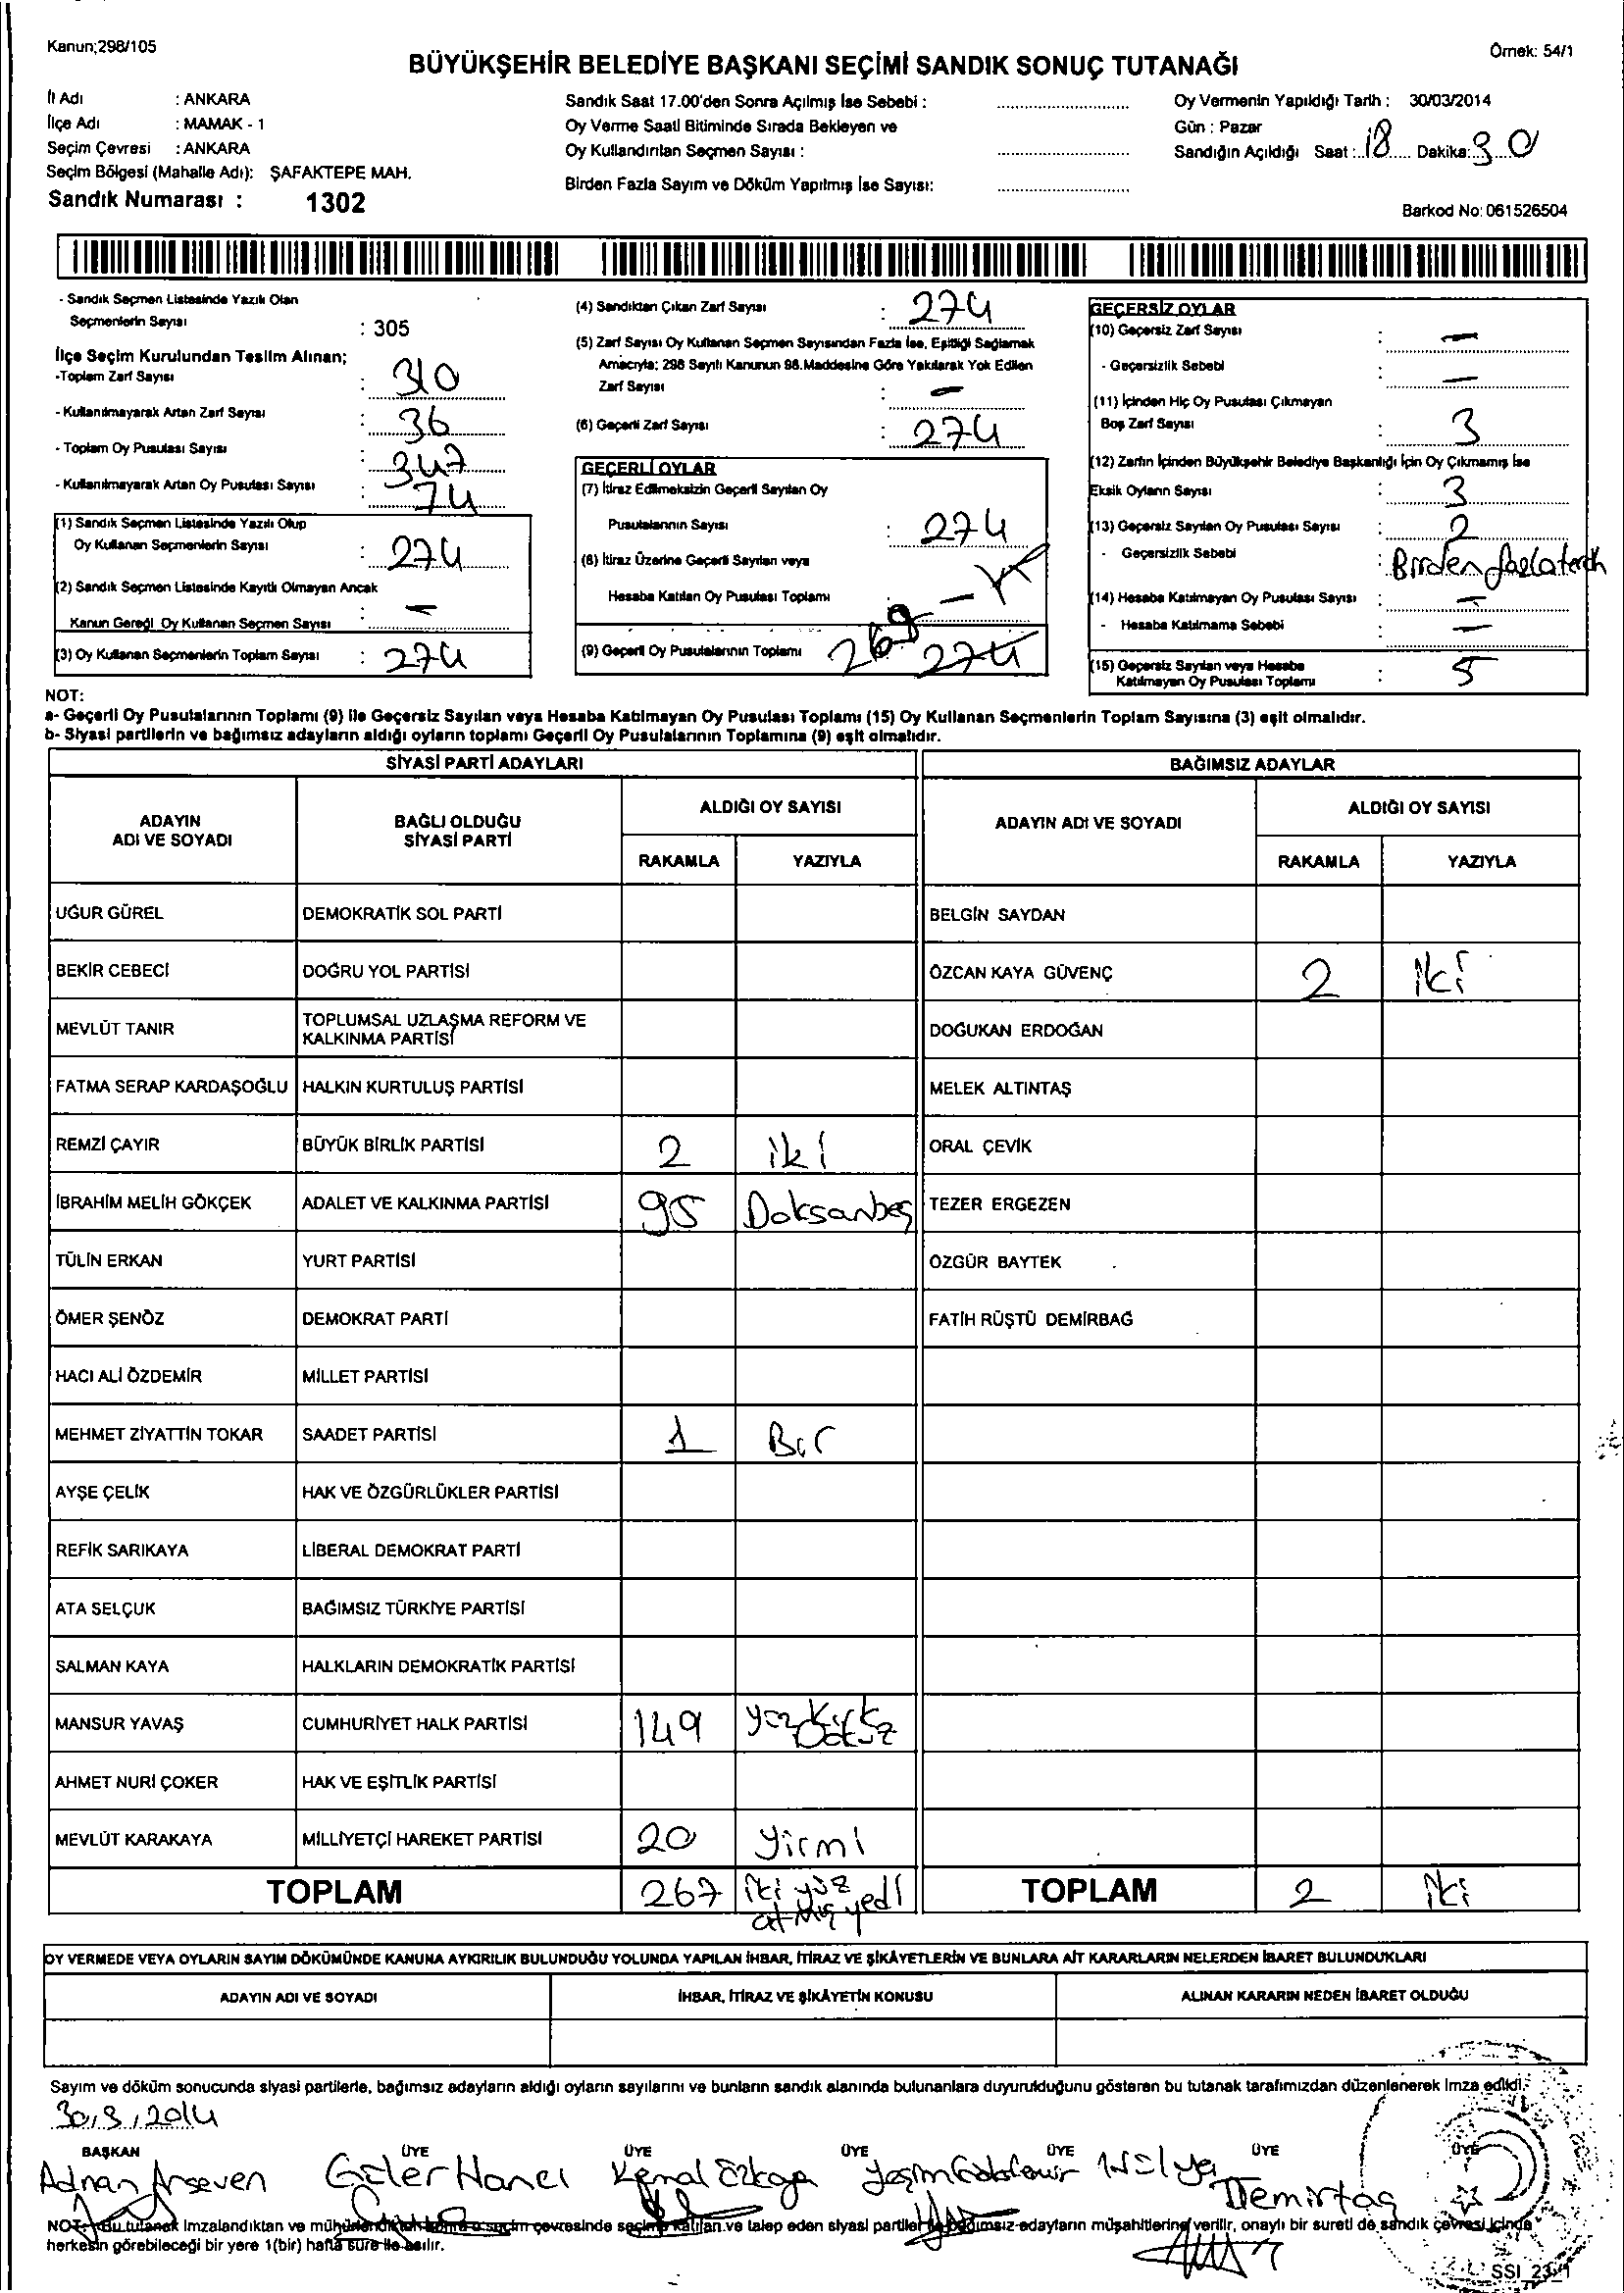 Kanun;298/105
Örnek: 54/1
BÜYÜKŞEHİR BELEDİYE BAŞKANI SEÇİMİ SANDIK SONUÇ TUTANAĞI
İl Adı : ANKARA
İlçe Adı : MAMAK - 1
Seçim Çevresi : ANKARA
Seçim Bölgesi (Mahalle Adı): ŞAFAKTEPE MAH.
Sandık Numarası : 1302
Sandık Saat 17.00'den Sonra Açılmış İse Sebebi :
Oy Verme Saati Bitiminde Sırada Bekleyen ve
Oy Kullandırılan Seçmen Sayısı :
Birden Fazla Sayım ve Döküm Yapılmış İse Sayısı:
Oy Vermenin Yapıldığı Tarih : 30/03/2014
Gün : Pazar
Sandığın Açıldığı Saat :..18..... Dakika: 30
Barkod No: 061526504
- Sandık Seçmen Listesinde Yazılı Olan
Seçmenlerin Sayısı : 305
İlçe Seçim Kurulundan Teslim Alınan;
-Toplam Zarf Sayısı : 310
- Kullanılmayarak Artan Zarf Sayısı : 36
- Toplam Oy Pusulası Sayısı : 347
- Kullanılmayarak Artan Oy Pusulası Sayısı : 74
(1) Sandık Seçmen Listesinde Yazılı Olup
Oy Kullanan Seçmenlerin Sayısı : 274
(2) Sandık Seçmen Listesinde Kayıtlı Olmayan Ancak
Kanun Gereği Oy Kullanan Seçmen Sayısı : -
(3) Oy Kullanan Seçmenlerin Toplam Sayısı : 274
(4) Sandıktan Çıkan Zarf Sayısı : 274
(5) Zarf Sayısı Oy Kullanan Seçmen Sayısından Fazla İse, Eşitliği Sağlamak
Amacıyla; 298 Sayılı Kanunun 98.Maddesine Göre Yakılarak Yok Edilen
Zarf Sayısı : -
(6) Geçerli Zarf Sayısı : 274
GEÇERLİ OYLAR
(7) İtiraz Edilmeksizin Geçerli Sayılan Oy
Pusulalarının Sayısı : 274
(8) İtiraz Üzerine Geçerli Sayılan veya
Hesaba Katılan Oy Pusulası Toplamı : -
(9) Geçerli Oy Pusulalarının Toplamı 269 274
GEÇERSİZ OYLAR
(10) Geçersiz Zarf Sayısı : -
- Geçersizlik Sebebi : -
(11) İçinden Hiç Oy Pusulası Çıkmayan
Boş Zarf Sayısı : 3
(12) Zarfın İçinden Büyükşehir Belediye Başkanlığı İçin Oy Çıkmamış İse
Eksik Oyların Sayısı : 3
(13) Geçersiz Sayılan Oy Pusulası Sayısı : 2
- Geçersizlik Sebebi : Birden
(14) Hesaba Katılmayan Oy Pusulası Sayısı : -
- Hesaba Katılmama Sebebi : -
(15) Geçersiz Sayılan veya Hesaba
Katılmayan Oy Pusulası Toplamı : 5
NOT:
a- Geçerli Oy Pusulalarının Toplamı (9) ile Geçersiz Sayılan veya Hesaba Katılmayan Oy Pusulası Toplamı (15) Oy Kullanan Seçmenlerin Toplam Sayısına (3) eşit olmalıdır.
b- Siyasi partilerin ve bağımsız adayların aldığı oyların toplamı Geçerli Oy Pusulalarının Toplamına (9) eşit olmalıdır.
SİYASİ PARTİ ADAYLARI BAĞIMSIZ ADAYLAR
ADAYIN ADI VE SOYADI BAĞLI OLDUĞU SİYASİ PARTİ ALDIĞI OY SAYISI ADAYIN ADI VE SOYADI ALDIĞI OY SAYISI
RAKAMLA YAZIYLA RAKAMLA YAZIYLA
UĞUR GÜREL DEMOKRATİK SOL PARTİ BELGİN SAYDAN
BEKİR CEBECİ DOĞRU YOL PARTİSİ ÖZCAN KAYA GÜVENÇ 2 iki
MEVLÜT TANIR TOPLUMSAL UZLAŞMA REFORM VE KALKINMA PARTİSİ DOĞUKAN ERDOĞAN
FATMA SERAP KARDAŞOĞLU HALKIN KURTULUŞ PARTİSİ MELEK ALTINTAŞ
REMZİ ÇAYIR BÜYÜK BİRLİK PARTİSİ 2 iki ORAL ÇEVİK
İBRAHİM MELİH GÖKÇEK ADALET VE KALKINMA PARTİSİ 95 Doksanbeş TEZER ERGEZEN
TÜLİN ERKAN YURT PARTİSİ ÖZGÜR BAYTEK
ÖMER ŞENÖZ DEMOKRAT PARTİ FATİH RÜŞTÜ DEMİRBAĞ
HACI ALİ ÖZDEMİR MİLLET PARTİSİ
MEHMET ZİYATTİN TOKAR SAADET PARTİSİ 1 Bir
AYŞE ÇELİK HAK VE ÖZGÜRLÜKLER PARTİSİ
REFİK SARIKAYA LİBERAL DEMOKRAT PARTİ
ATA SELÇUK BAĞIMSIZ TÜRKİYE PARTİSİ
SALMAN KAYA HALKLARIN DEMOKRATİK PARTİSİ
MANSUR YAVAŞ CUMHURİYET HALK PARTİSİ 149 yüzkırk
AHMET NURİ ÇOKER HAK VE EŞİTLİK PARTİSİ
MEVLÜT KARAKAYA MİLLİYETÇİ HAREKET PARTİSİ 20 yirmi
TOPLAM 267 iki yüz atmış yedi TOPLAM 2 iki
OY VERMEDE VEYA OYLARIN SAYIM DÖKÜMÜNDE KANUNA AYKIRILIK BULUNDUĞU YOLUNDA YAPILAN İHBAR, İTİRAZ VE ŞİKÂYETLERİN VE BUNLARA AİT KARARLARIN NELERDEN İBARET BULUNDUKLARI
ADAYIN ADI VE SOYADI İHBAR, İTİRAZ VE ŞİKÂYETİN KONUSU ALINAN KARARIN NEDEN İBARET OLDUĞU
Sayım ve döküm sonucunda siyasi partilerle, bağımsız adayların aldığı oyların sayılarını ve bunların sandık alanında bulunanlara duyurulduğunu gösteren bu tutanak tarafımızdan düzenlenerek imza edildi.
30/3/2014
BAŞKAN ÜYE ÜYE ÜYE ÜYE ÜYE ÜYE
Adnan Arseven Güler Hancı Kemal Özkaya Yeşim Hülya Demirtaş
NOT: Bu tutanak imzalandıktan ve mühürlendikten sonra o seçim çevresinde seçime katılan ve talep eden siyasi partiler ile bağımsız adayların müşahitlerine verilir, onaylı bir sureti de sandık çevresi içinde
herkesin görebileceği bir yere 1(bir) hafta süre ile asılır.
SSI_23/1